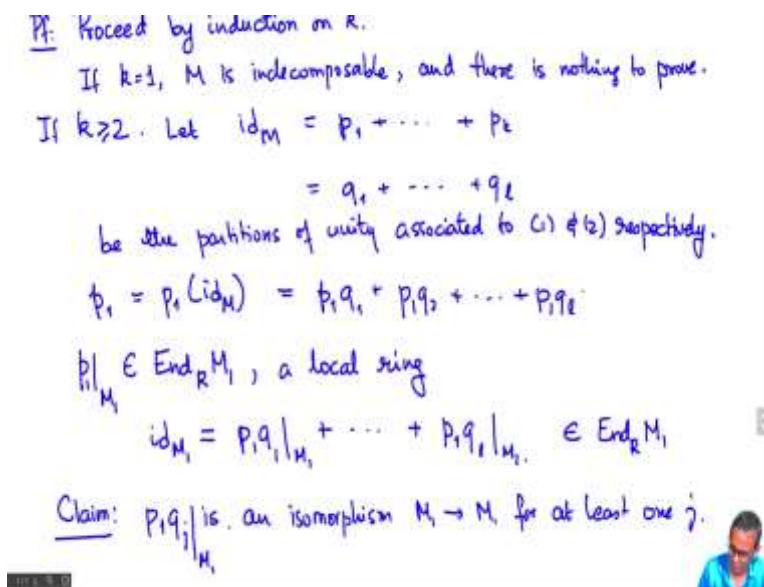 Pf: Proceed by induction on k.
If k=1, M is indecomposable, and there is nothing to prove.
If k⩾2. Let id_M = p₁ + ··· + p_k
= q₁ + ··· + q_l
be the partitions of unity associated to (1) & (2) respectively.
p₁ = p₁(id_M) = p₁q₁ + p₁q₂ + ··· + p₁q_l
p₁|_M₁ ∈ End_R M₁, a local ring
id_M₁ = p₁q₁|_M₁ + ··· + p₁q_l|_M₁. ∈ End_R M₁
Claim: p₁q_j|_M₁ is an isomorphism M₁ → M₁ for at least one j.